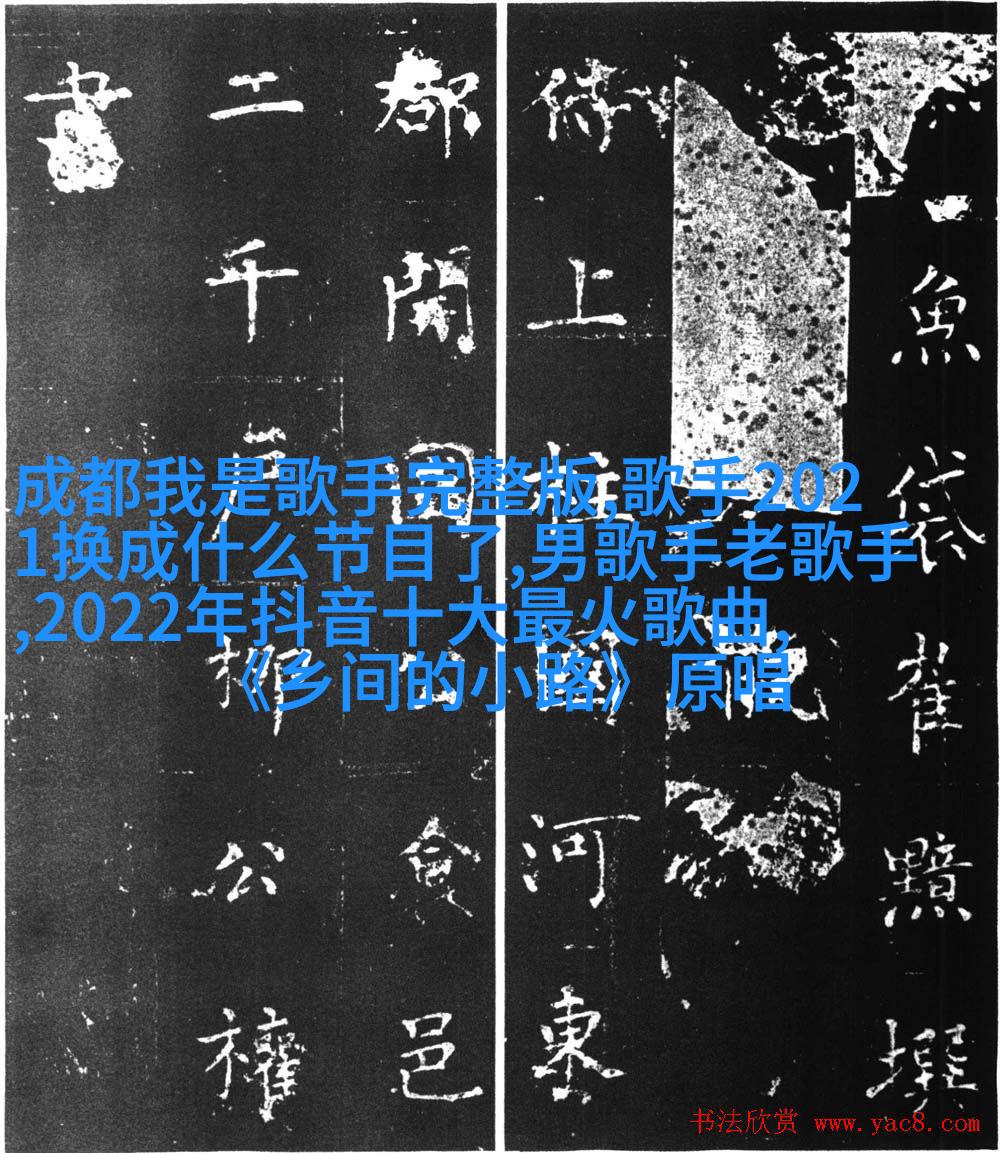 魚袋崔黯撰
侍上柱國河東
郡開國公食邑
二千戶柳公權
書
成都我是歌手完整版,歌手202
1换成什么节目了,男歌手老歌手
,2022年抖音十大最火歌曲,
《乡间的小路》原唱
书法欣赏 www.yac8.com